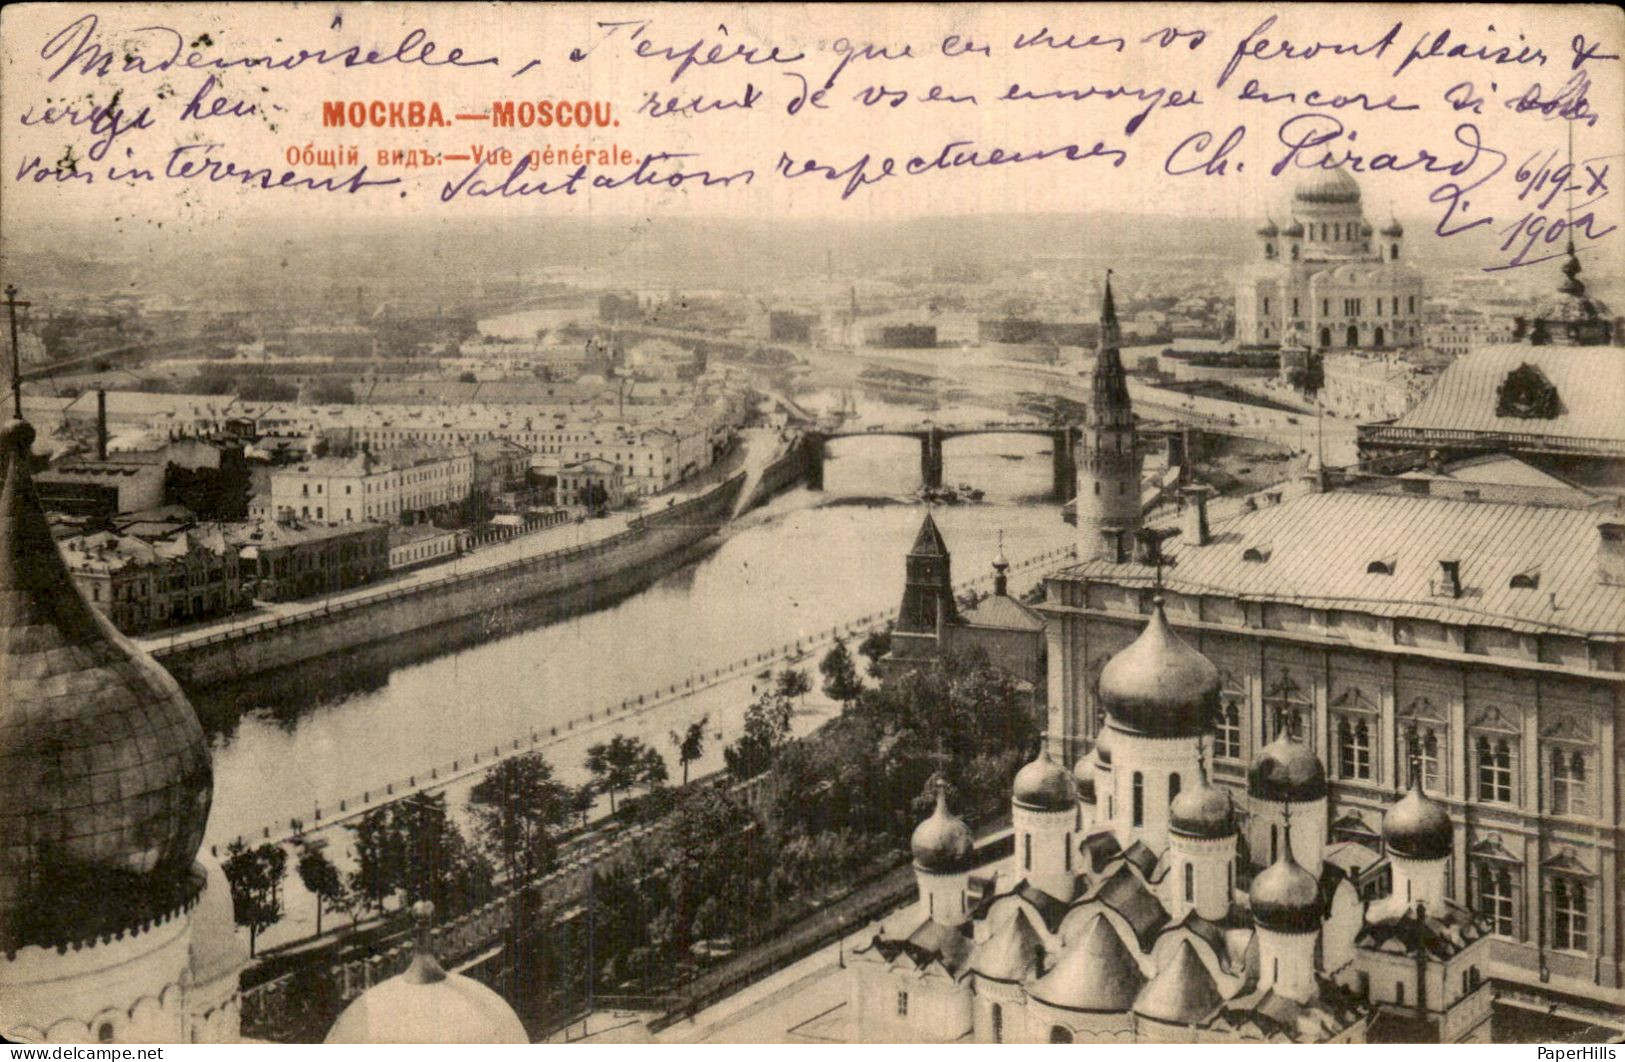 Mademoiselle, J'espère que ces vues vs feront plaisir &
serai heu- МОСКВА.—MOSCOU. reux de vs en envoyer encore si elles
Общій видъ:—Vue générale.
vous intéressent. Salutations respectueuses Ch. Pirard
6/19-X
1902
PaperHills